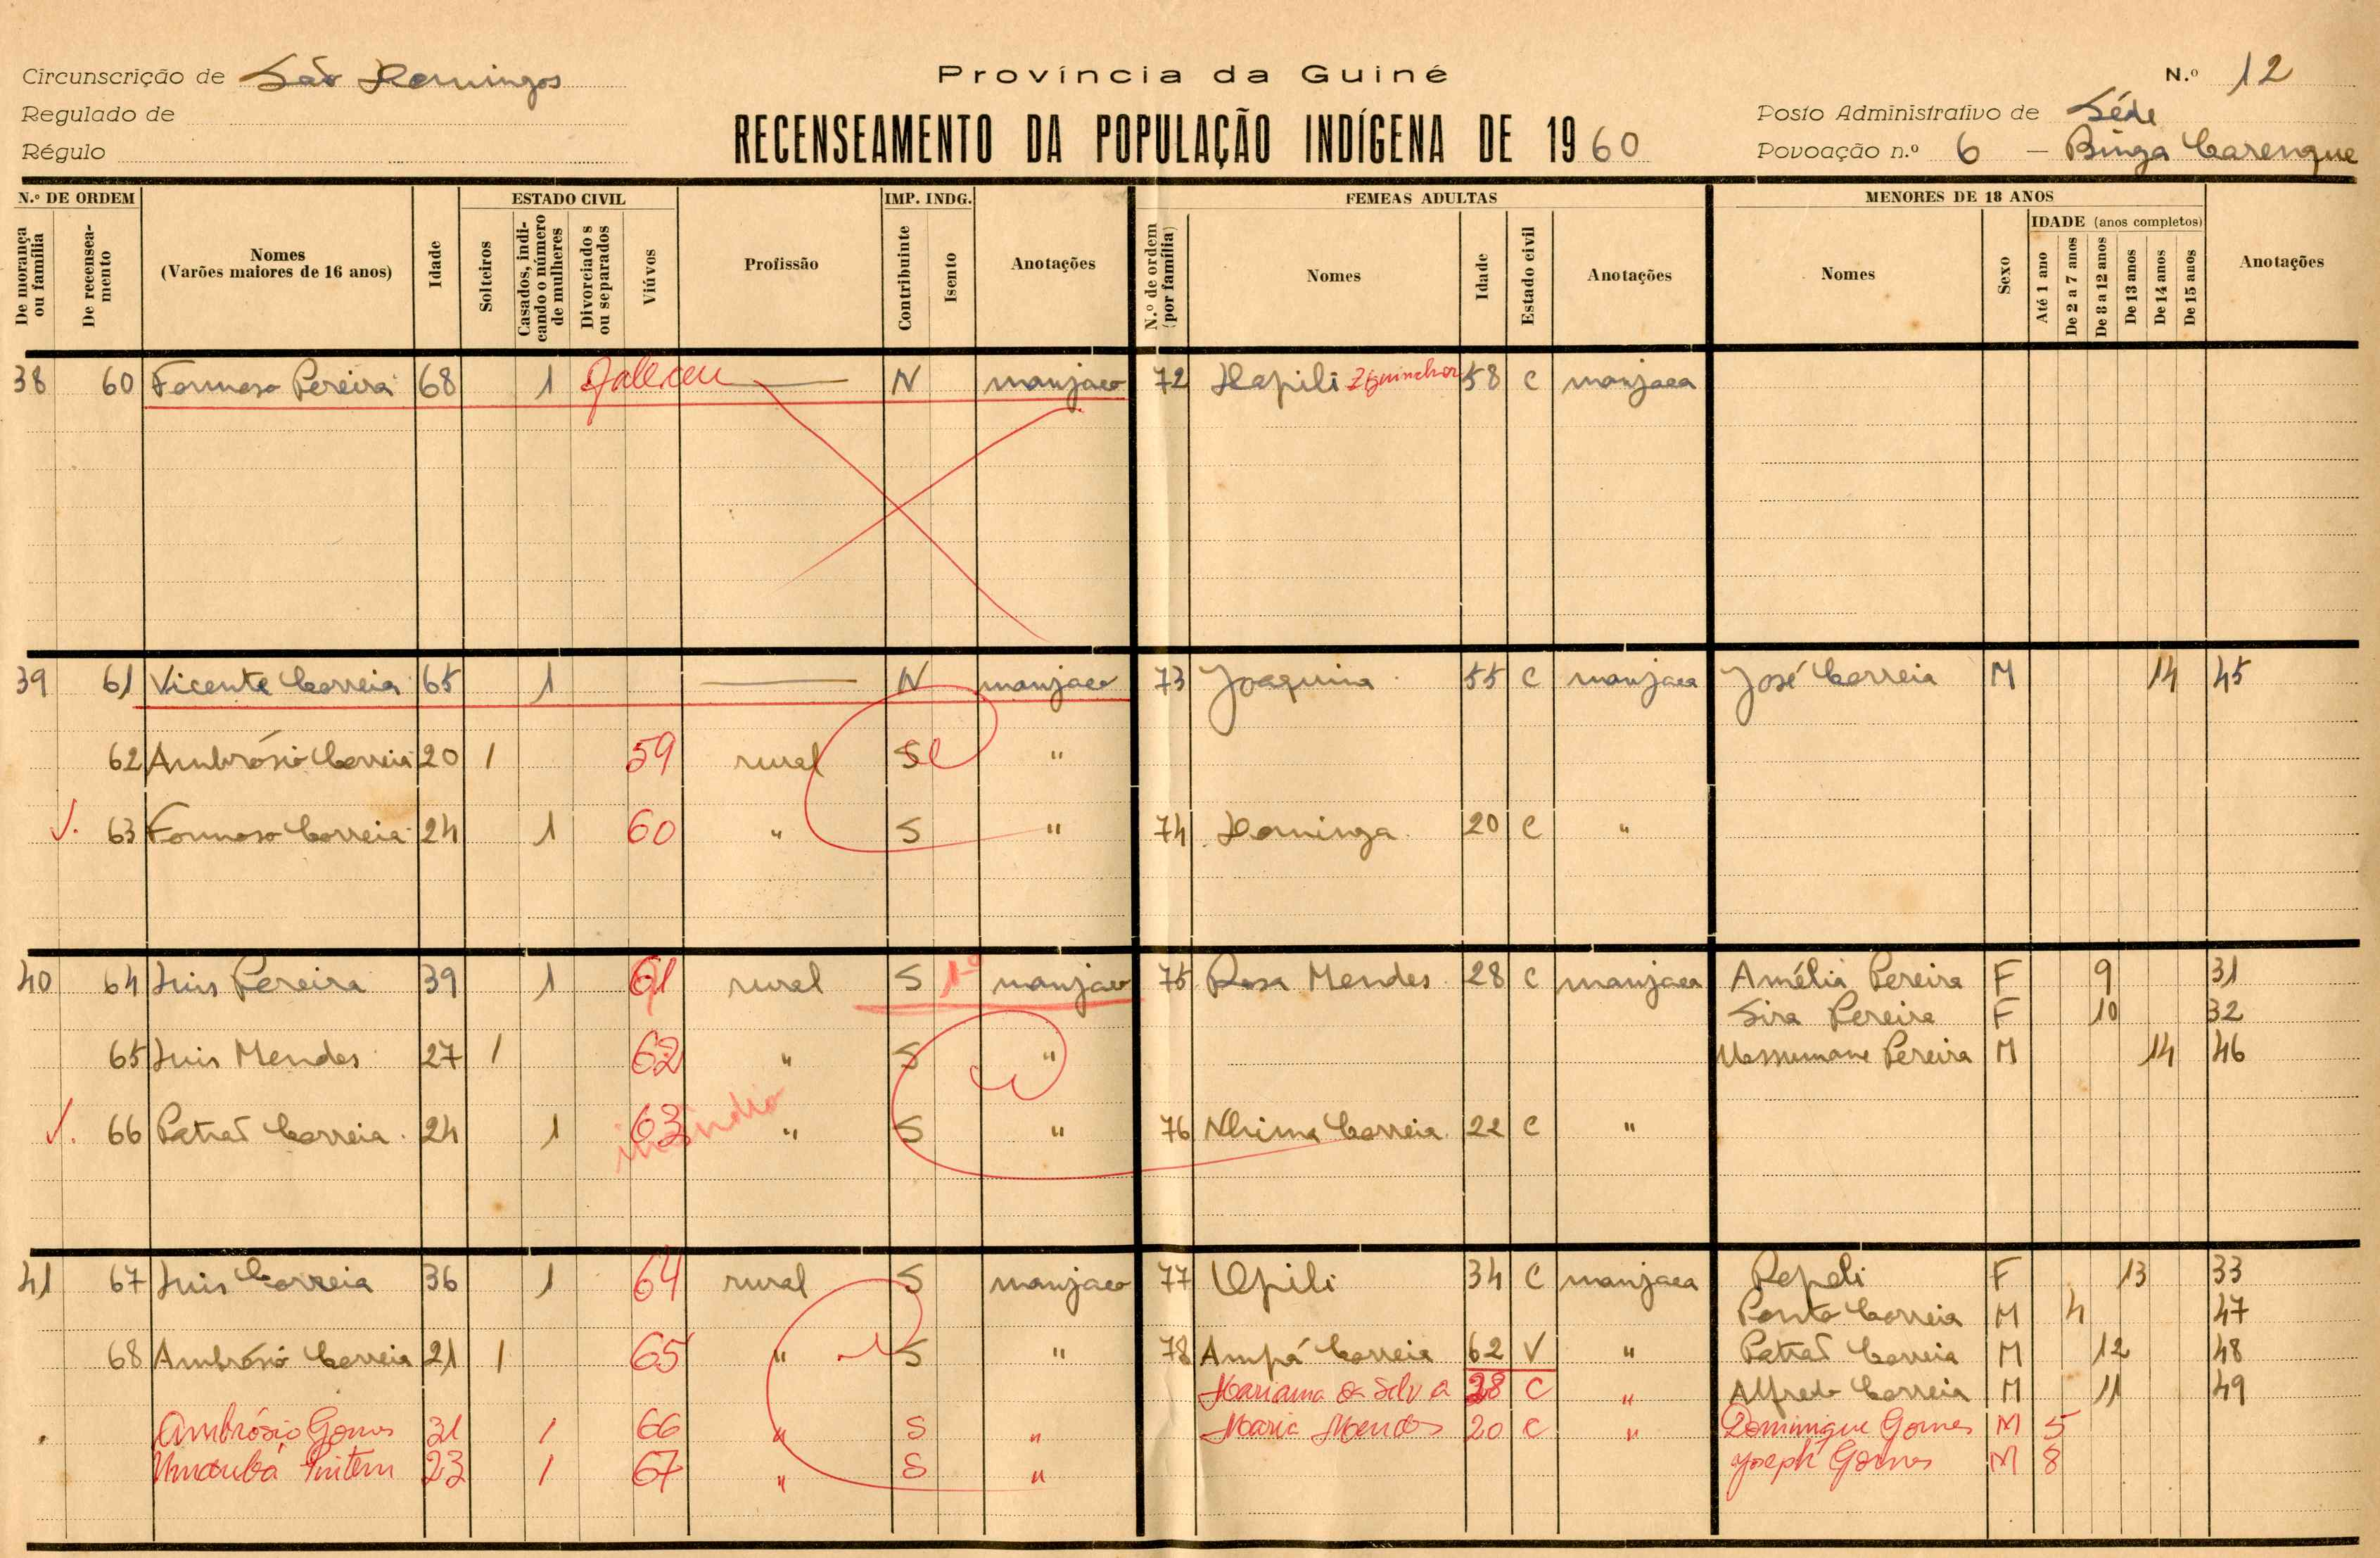 Circunscrição de São Domingos
Província da Guiné
N.º 12
Regulado de
RECENSEAMENTO DA POPULAÇÃO INDÍGENA DE 1960
Posto Administrativo de Séde
Régulo
Povoação n.º 6 - Binga Carenque
N.º DE ORDEM
ESTADO CIVIL
IMP. INDG.
FEMEAS ADULTAS
MENORES DE 18 ANOS
De morança ou família
De recenseamento
Nomes
(Varões maiores de 16 anos)
Idade
Solteiros
Casados, indicando o número de mulheres
Divorciados ou separados
Viúvos
Profissão
Contribuinte
Isento
Anotações
N.º de ordem (por família)
Nomes
Idade
Estado civil
Anotações
Nomes
Sexo
IDADE (anos completos)
Até 1 ano
De 2 a 7 anos
De 8 a 12 anos
De 13 anos
De 14 anos
De 15 anos
Anotações
38 60 Formoso Pereira 68 1 Faleceu N manjaco 72 Hapili Ziguinchor 58 C manjaca
39 61 Vicente Correia 65 1 N manjaco 73 Joaquina 55 C manjaca José Correia M 14 45
62 Ambrósio Correia 20 1 59 rural S "
63 Formoso Correia 24 1 60 " S " 74 Dominga 20 C "
40 64 Luis Pereira 39 1 61 rural S 1º manjaco 75 Rosa Mendes 28 C manjaca Amélia Pereira F 9 31
Sira Pereira F 10 32
65 Luis Mendes 27 1 62 " S " Ussumane Pereira M 14 46
66 Patraõ Correia 24 1 63 " S " 76 Nhima Correia 22 C "
41 67 Luis Correia 36 1 64 rural S manjaco 77 Upili 34 C manjaca Pepeli F 13 33
Ponto Correia M 4 47
68 Ambrósio Correia 21 1 65 " S " 78 Ampá Correia 62 V " Patraõ Correia M 12 48
Mariama da Silva 28 C " Alfredo Correia M 11 49
Ambrósio Gomes 31 1 66 " S " Maria Mendes 20 C " Dominique Gomes M 5
23 1 67 " S " Joseph Gomes M 8